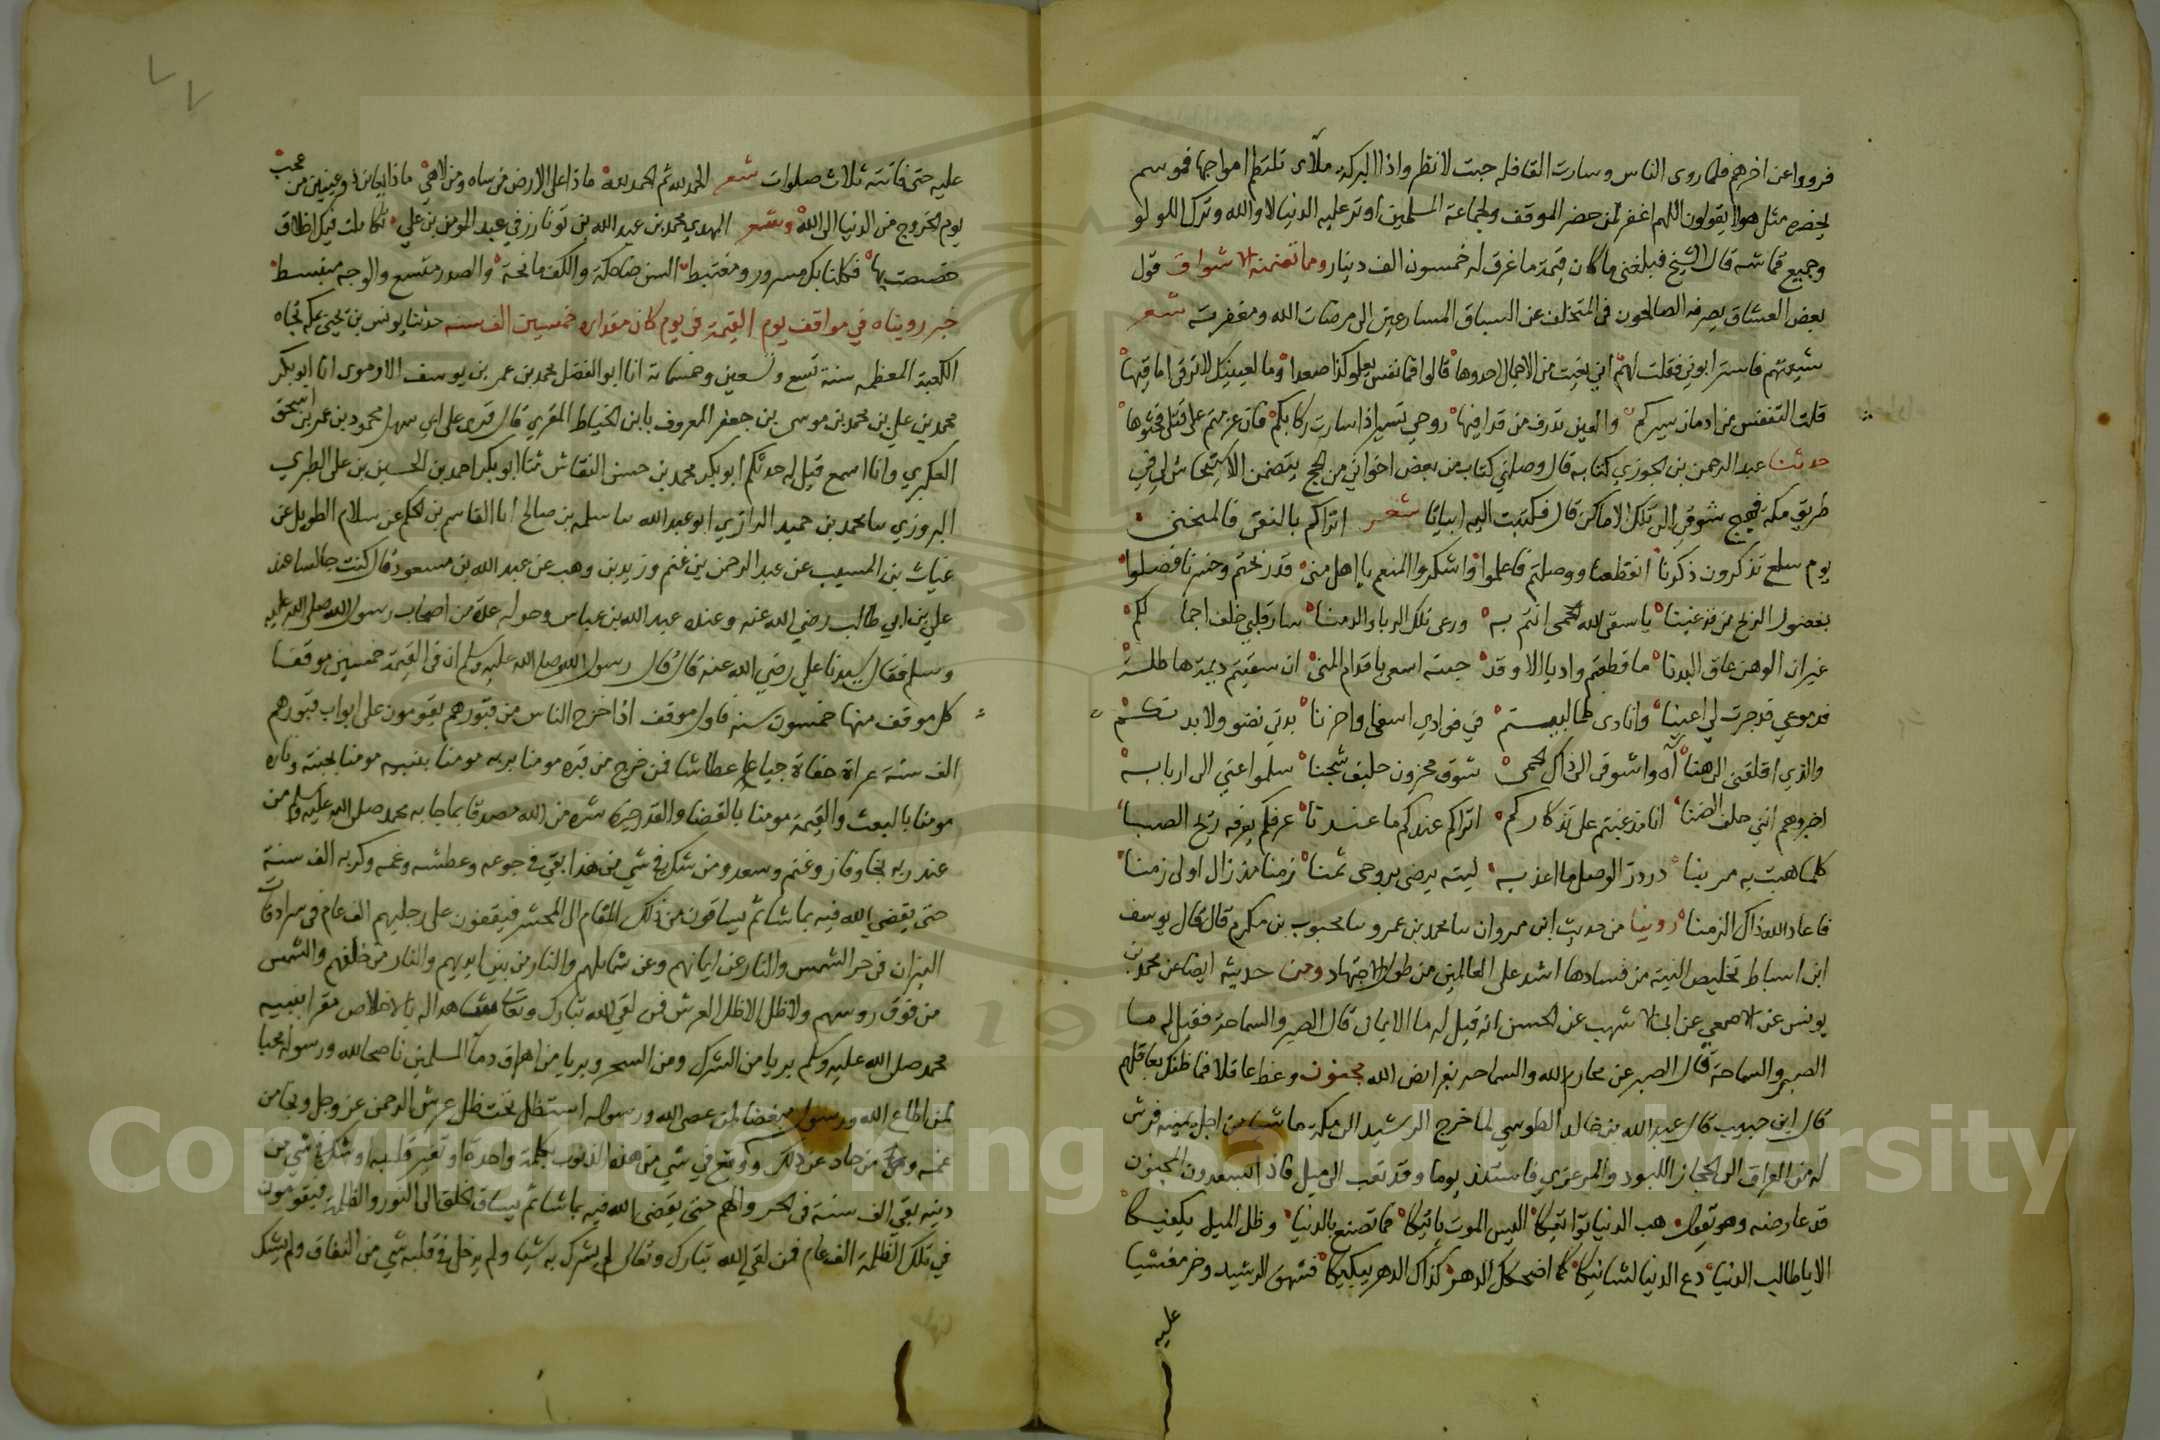 فرووا عن اخرهم فلما روى الناس وسارت القافله جبت لانظر واذا البركة ملآى تلتطم امواجها فموسم
يحضره مثل هولا يقولون اللهم اغفر لمن حضر الموقف ولجماعة المسلمين اوثر عليه الدنيا لا والله وترك اللولو
وجميع قماشه قال الشيخ فبلغنى ما كان قيمة ما غرق له خمسون الف دينار ومما تضمنه الاشواق قول
بعض العشاق يصرفه الصالحون في المتخلف عن السباق المسارعين الى مرضات الله ومغفرته شعر
شيعتهم فاسترابوني فقلت لهم اني بعثت من الاجمال احدوها قالوا فما نفس يعلو كذا صعدا وما لعينيك لا ترقى اماقيها
قلت التنفس من ادمان سيركم والعين تذرف من قذا فيها روحي تسير اذا سارت ركابكم فان عزمتم على قتلى فحثوها
حدثنا عبد الرحمن بن الجوزي كتابه قال وصلني كتاب من بعض اخواني من الحج يتضمن الاستيحاش لي في
طريق مكة فهيج شوقي الى تلك الاماكن قال فكتبت اليه ابياتا شعر اتراكم بالنقى فالمنحنى
يوم سلع تذكرون ذكرنا انقطعنا ووصلتم فاعلموا واشكروا المنعم يا اهل منى قد ربحتم وخسرنا فصلوا
بفضول الربح من قد غبنا يا سقى الله الحمى انتم به ورعى تلك الربا والدمنا سار قلبي خلف اجمالكم
غير ان الوهن عاق البدنا ما قطعتم واديا الا وقد جيته اسعى باقدام المنى ان سقيتم ديمة هاطلة
فدموعي قد جرت لي اعينا وانادى كلما لبيتم في فوادي اسفى واحزنا بدني نضو ولا بد تكم
والذي اقلقني الى هنا آه واشوقي الى ذاك الحمى شوق محزون حليف شجنا سلموا عني الى اربابه
اخبروهم انني حلف الضنا انا مذ غبتم على تذكاركم اتراكم عندكم ما عندنا عرفكم يعرفه ريح الصبا
كلما هبت به مر بنا در در الوصل ما اعذبه ليته يرضى بروحي ثمنا زمنا مذ زال اولى زمنا
فاعاد الله ذاك الزمنا روينا من حديث ابن مروان سا محمد بن عمرو سا محبوب بن مكرم قال قال يوسف
ابن اسباط تخليص النية من فسادها اشد على العالمين من طول الاجتهاد ومن حديثه ايضا عن محمد بن
يونس عن الاصمعي عن ابى الاشهب عن الحسن انه قيل له ما الايمان قال الصبر والسماحة فقيل له ما
الصبر والسماحة قال الصبر عن محارم الله والسماحة بفرايض الله مجنون وعظ عاقلا فما ظنك بعاقلهم
قال ابن حبيب قال عبد الله بن خالد الطوسي لما خرج الرشيد الى مكة ماشيا من اجل يمينه فرش
له من العراق الى الحجاز اللبود والمرعزي فاستند يوما وقد تعب الى ميل فاذا السعدون المجنون
قد عارضه وهو يقول هب الدنيا تواتيكا اليس الموت ياتيكا فما تصنع بالدنيا وظل الميل يكفيكا
الا يا طالب الدنيا دع الدنيا لشانيكا كما اضحكك الدهر كذاك الدهر يبكيكا فشهق الرشيد وخر مغشيا
عليه
عليه حتى فاتته ثلاث صلوات شعر الحمد لله ثم الحمد لله ماذا على الارض من ساه ومن لاهي ماذا يعاين ذو عينين من عجب
يوم الخروج من الدنيا الى الله وشعر المهدي محمد بن عبد الله بن تونارز في عبد المومن بن علي تكاملت فيك اخلاق
خصصت بها فكلنا بك مسرور ومغتبط السن ضاحكة والكف مانحة والصدر متسع والوجه منبسط
خبر رويناه في مواقف يوم القيمة في يوم كان مقداره خمسين الف سنه حدثنا يونس بن يحيى بمكة تجاه
الكعبة المعظمة سنة تسع وتسعين وخمسماية انا ابو الفضل محمد بن عمر بن يوسف الارموى انا ابو بكر
محمد بن علي بن محمد بن موسى بن جعفر المعروف بابن الخياط المقري قال قرى على ابي سهل محمود بن عمر بن اسحق
العكبري وانا اسمع قيل له حدثكم ابو بكر محمد بن حسن النقاش ثنا ابو بكر احمد بن الحسين بن على الطبري
البروزي سا محمد بن حميد الرازي ابو عبد الله سا سلمه بن صالح انا القاسم بن الحكم عن سلام الطويل عن
غياث بن المسيب عن عبد الرحمن بن غنم وزيد بن وهب عن عبد الله بن مسعود قال كنت جالسا عند
علي بن ابي طالب رضي الله عنه وعنده عبد الله بن عباس وحوله عدة من اصحاب رسول الله صلى الله عليه
وسلم فقال سيدنا علي رضي الله عنه قال قال رسول الله صلى الله عليه وسلم ان في القيمة خمسين موقفا
كل موقف منها خمسون سنه فاول موقف اذا خرج الناس من قبورهم يقومون على ابواب قبورهم
الف سنة عراة حفاة جياعا عطاشا فمن خرج من قبره مومنا بربه مومنا بنبيه مومنا بجنته وناره
مومنا بالبعث والقيمة مومنا بالقضا والقدر خيره وشره من الله مصدقا بما جا به محمد صلى الله عليه وسلم من
عند ربه نجا وفاز وغنم وسعد ومن شك في شي من هذا بقي في جوعه وعطشه وغمه وكربه الف سنة
حتى يقضي الله فيه بما شا ثم يساقون من ذلك المقام الى المحشر فيقفون على ارجلهم الف عام في سرادقات
النيران في حر الشمس والنار عن ايمانهم وعن شمائلهم والنار من بين ايديهم والنار من خلفهم والشمس
من فوق روسهم ولا ظل الا ظل العرش فمن لقي الله تبارك وتعالى شاهدا له بالاخلاص مقرا بنبيه
محمد صلى الله عليه وسلم بريا من الشرك ومن السحر وبريا من اهراق دما المسلمين ناصحا لله ورسوله محبا
لمن اطاع الله ورسوله مبغضا لمن عصى الله ورسوله استظل تحت ظل عرش الرحمن عز وجل ونجا من
غمه ومن حاد عن ذلك ووقع في شي من هذه الذنوب بكلمة واحدة او تغير قلبه او شك في شي من
دينه بقي الف سنة في الحر والهم حتى يقضى الله فيه بما شا ثم يساق الخلق الى النور والظلمة فيقومون
في تلك الظلمة الف عام فمن لقي الله تبارك وتعالى لم يشرك به شيا ولم يدخل في قلبه شي من النفاق ولم يشك
Copyright © King Saud University
1957